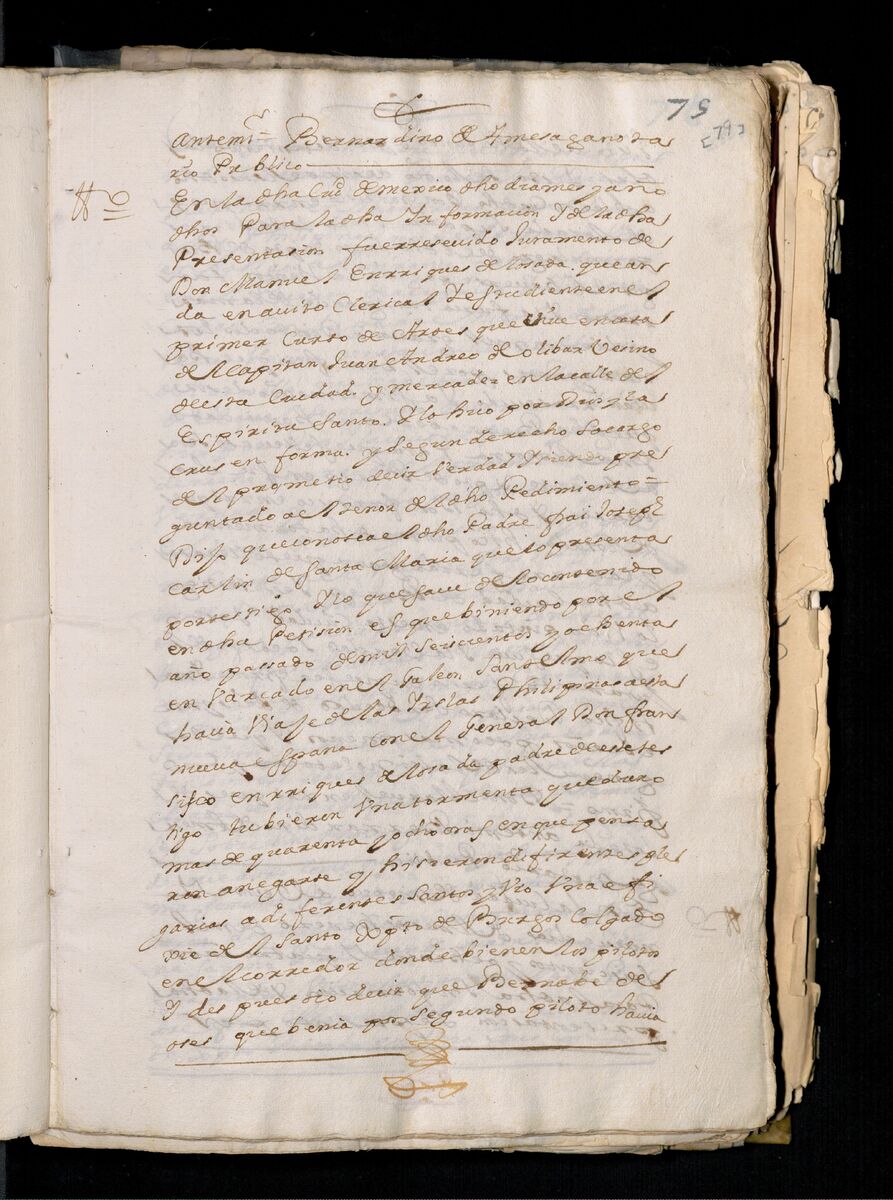 75
[79]
Antemi = Bernardino de Amesaga nota
rio Publico
En la dha Ciud de mexico dho dia mes y año
dhos Para la dha Informacion Y de la dha
Presentasion fue rresevido Juramento de
Don Manuel Enrriques de losada que an
da en avito Clerical Y estudiente en el
primer Curso de Artes que vive en casa
del Capitan Juan Andreo de olibar Vesino
de esta Ciudad y mercader en la calle del
Espiritu Santo. Y lo hiço por Dios y la
Crus en forma. y segun derecho so cargo
del prometio decir Verdad Y siendo pre
guntado a el tenor del dho Pedimiento =
Dijo que conose a el dho Padre frai Joseph
Carlin de Santa Maria que lo presenta
por testigo Y lo que save de lo contenido
en dha Petision es que biniendo por el
año passado de mil seiscientos y ochenta
en Varcado en el Galeon Santelmo que
havia Viaje de las Yslas Philipinas a esta
nueva españa con el General Don fran
sisco enrriques de losada padre de este tes
tigo tubieron Una tormenta que duro
mas de quarenta y ocho oras en que pensa
ron anegarse y hisieron difirentes ple
garias a diferentes santos y Vio Una efi
xie del Santo Xpto de Burgos Colgado
en el corredor donde bienen los pilotos
Y despues oio decir que Bernabe de
oses que benia por segundo piloto havia